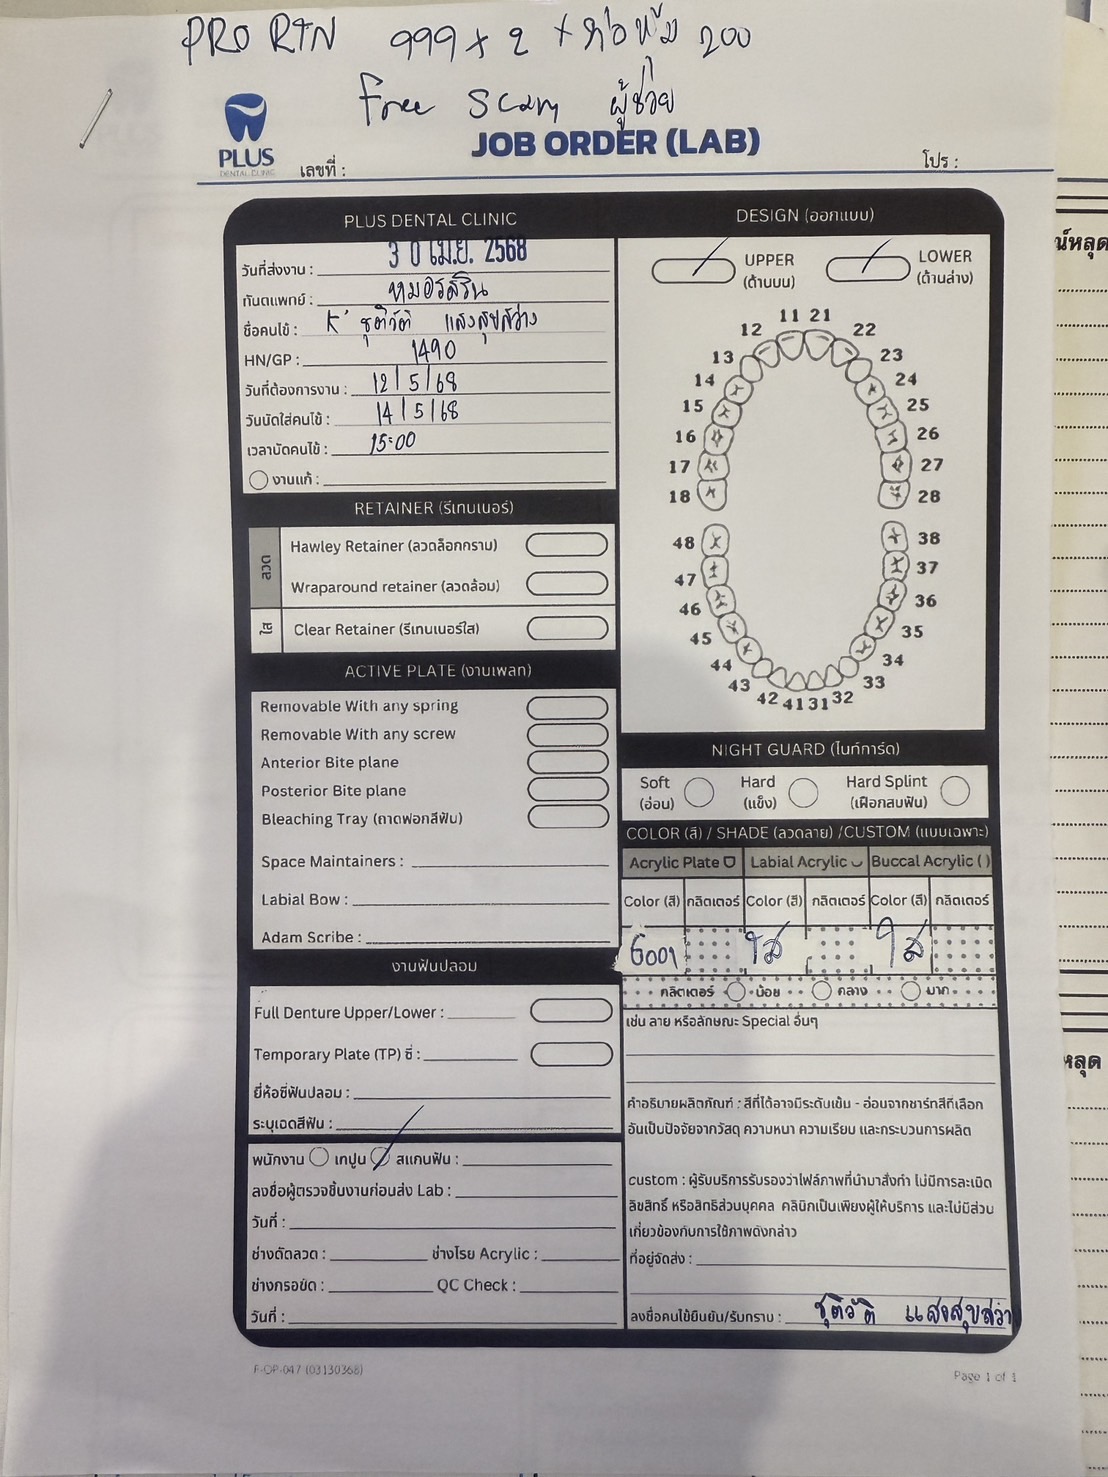 PRO RTN 999 x 2 + ท่อหุ้ม 200
Free Scan ผู้ช่วย
PLUS
DENTAL CLINIC
JOB ORDER (LAB)
เลขที่ :
โปร :
PLUS DENTAL CLINIC
วันที่ส่งงาน : 3 0 เม.ย. 2568
ทันตแพทย์ : หมอรสริน
ชื่อคนไข้ : K' ชุติวัติ แสงสุขสว่าง
HN/GP : 1490
วันที่ต้องการงาน : 12/5/68
วันนัดใส่คนไข้ : 14/5/68
เวลานัดคนไข้ : 15:00
งานแก้ :
RETAINER (รีเทนเนอร์)
ลวด
Hawley Retainer (ลวดล็อกกราม)
Wraparound retainer (ลวดล้อม)
ใส
Clear Retainer (รีเทนเนอร์ใส)
ACTIVE PLATE (งานเพลท)
Removable With any spring
Removable With any screw
Anterior Bite plane
Posterior Bite plane
Bleaching Tray (ถาดฟอกสีฟัน)
Space Maintainers :
Labial Bow :
Adam Scribe :
งานฟันปลอม
Full Denture Upper/Lower :
Temporary Plate (TP) ซี่ :
ยี่ห้อซี่ฟันปลอม :
ระบุเฉดสีฟัน :
พนักงาน เทปูน สแกนฟัน :
ลงชื่อผู้ตรวจชิ้นงานก่อนส่ง Lab :
วันที่ :
ช่างดัดลวด : ช่างโรย Acrylic :
ช่างกรอขัด : QC Check :
วันที่ :
DESIGN (ออกแบบ)
UPPER (ด้านบน)
LOWER (ด้านล่าง)
11 21
12 22
13 23
14 24
15 25
16 26
17 27
18 28
48 38
47 37
46 36
45 35
44 34
43 33
42 41 31 32
NIGHT GUARD (ไนท์การ์ด)
Soft (อ่อน)
Hard (แข็ง)
Hard Splint (เฝือกสบฟัน)
COLOR (สี) / SHADE (ลวดลาย) /CUSTOM (แบบเฉพาะ)
Acrylic Plate Labial Acrylic Buccal Acrylic ( )
Color (สี) กลิตเตอร์ Color (สี) กลิตเตอร์ Color (สี) กลิตเตอร์
G001 ใส ใส
กลิตเตอร์ น้อย กลาง มาก
เช่น ลาย หรือลักษณะ Special อื่นๆ
คำอธิบายผลิตภัณฑ์ : สีที่ได้อาจมีระดับเข้ม - อ่อนจากชาร์ทสีที่เลือก
อันเป็นปัจจัยจากวัสดุ ความหนา ความเรียบ และกระบวนการผลิต
custom : ผู้รับบริการรับรองว่าไฟล์ภาพที่นำมาสั่งทำ ไม่มีการละเมิด
ลิขสิทธิ์ หรือสิทธิส่วนบุคคล คลินิกเป็นเพียงผู้ให้บริการ และไม่มีส่วน
เกี่ยวข้องกับการใช้ภาพดังกล่าว
ที่อยู่จัดส่ง :
ลงชื่อคนไข้ยืนยัน/รับทราบ : ชุติวัติ แสงสุขสว่า
F-OP-047 (03130368)
Page 1 of 1
น์หลุด
หลุด